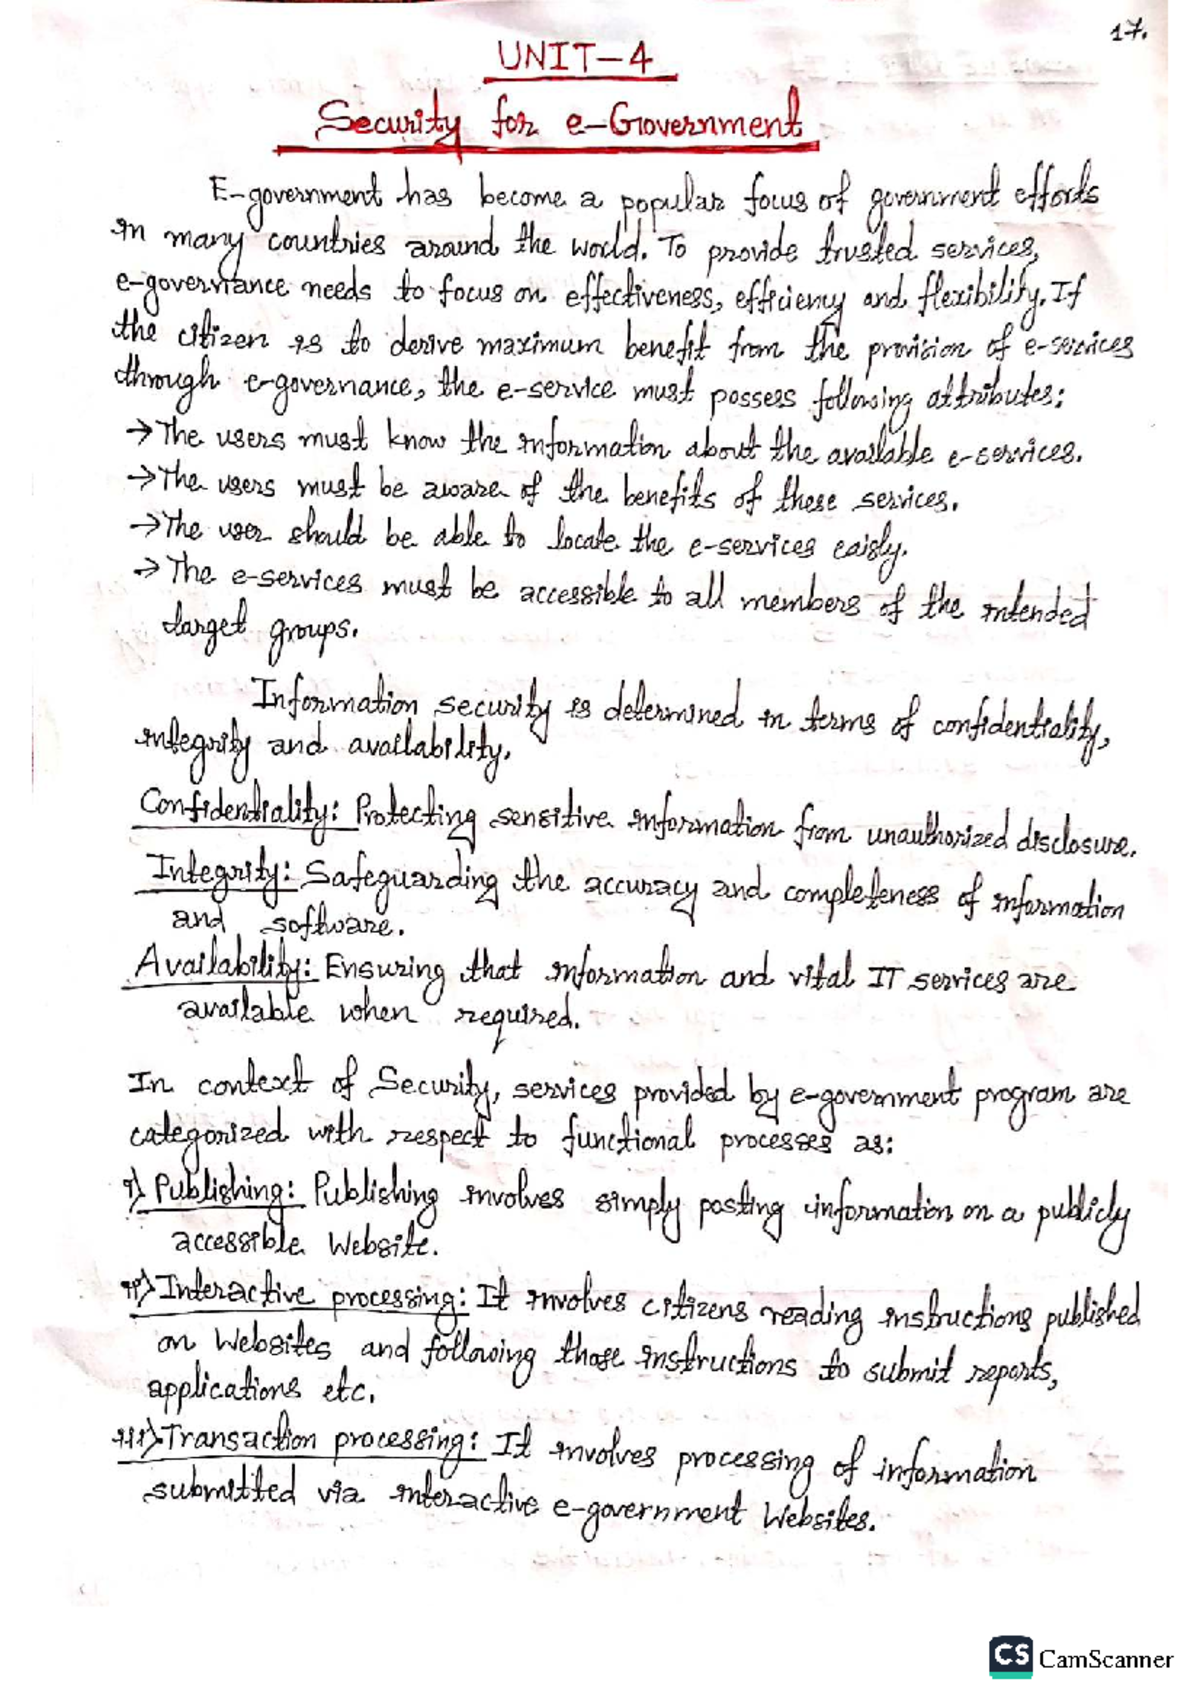 17.
UNIT-4
Security for e-Government
E-government has become a popular focus of government efforts
in many countries around the world. To provide trusted services,
e-governance needs to focus on effectiveness, efficiency and flexibility. If
the citizen is to derive maximum benefit from the provision of e-services
through e-governance, the e-service must possess following attributes:
→The users must know the information about the available e-services.
→The users must be aware of the benefits of these services.
→The user should be able to locate the e-services eaisly.
→The e-services must be accessible to all members of the intended
target groups.
Information security is determined in terms of confidentiality,
integrity and availability.
Confidentiality: Protecting sensitive information from unauthorized disclosure.
Integrity: Safeguarding the accuracy and completeness of information
and software.
Availability: Ensuring that information and vital IT services are
available when required.
In context of Security, services provided by e-government program are
categorized with respect to functional processes as:
i) Publishing: Publishing involves simply posting information on a publicly
accessible Website.
ii) Interactive processing: It involves citizens reading instructions published
on Websites and following those instructions to submit reports,
applications etc.
iii) Transaction processing: It involves processing of information
submitted via interactive e-government Websites.
CS CamScanner